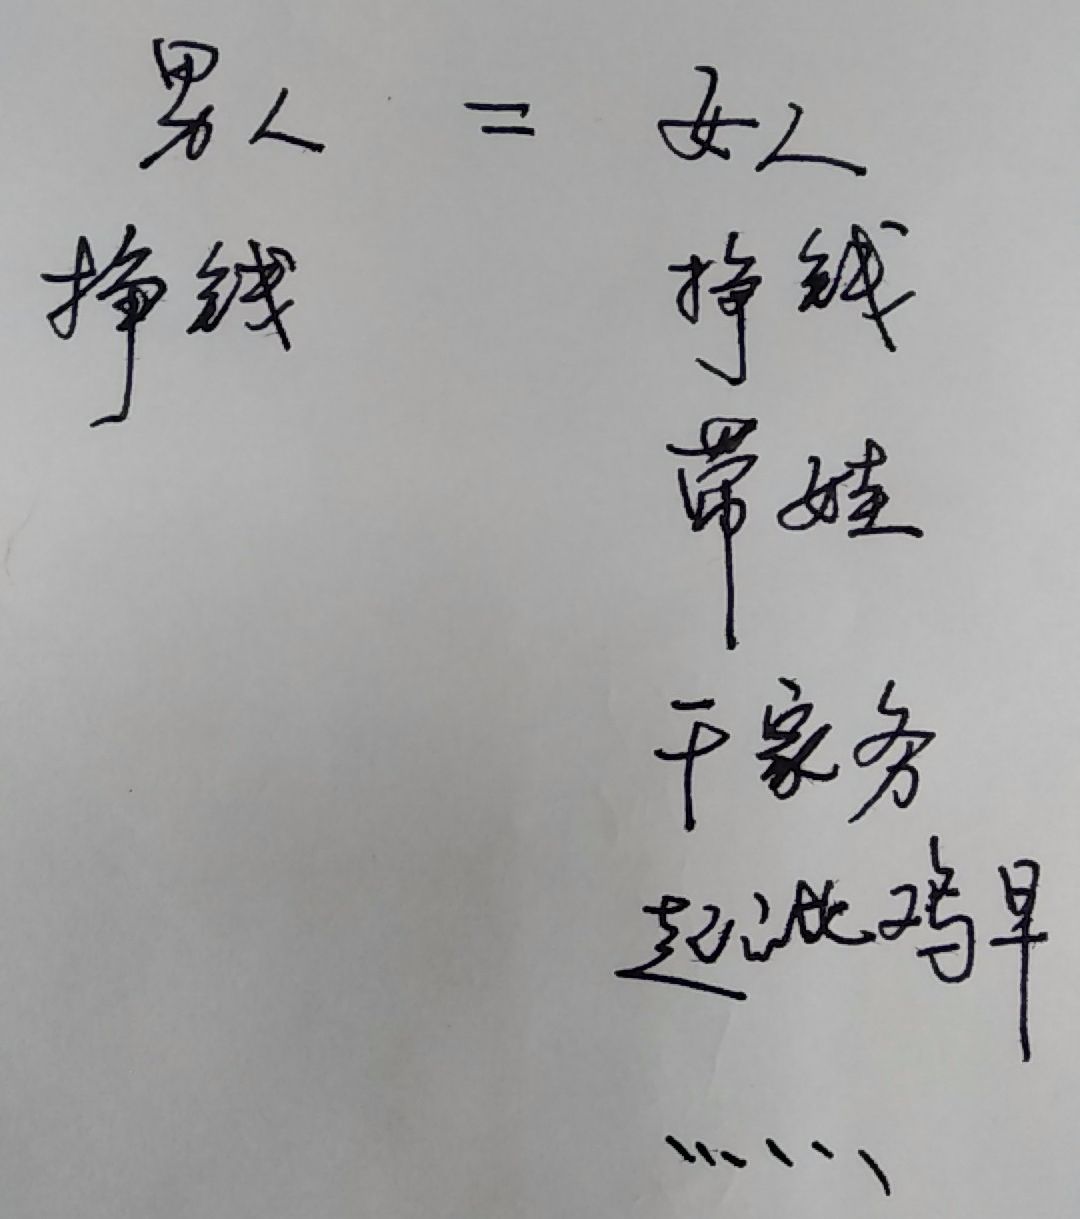 男人 = 女人
挣钱 挣钱
带娃
干家务
起比鸡早
……